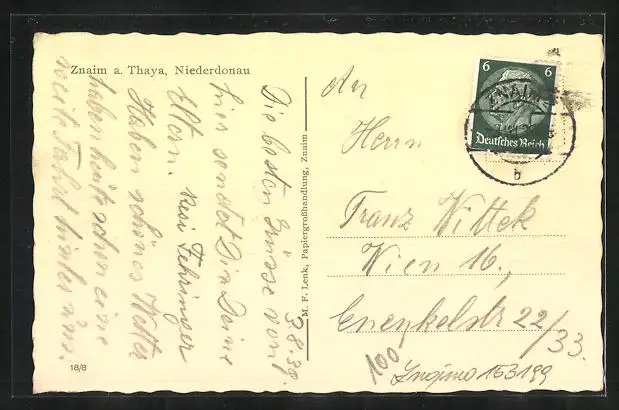 Znaim a. Thaya, Niederdonau
3.8.39.
Die besten Grüsse von
hier sendet Dir Deine
Eltern. Resi Fehringer
Haben schönes Wetter
haben heute schon eine
weite Fahrt hinter uns.
18/8
M. F. Lenk, Papiergroßhandlung, Znaim
6 6
Deutsches Reich
ZNAIM
b
An
Herrn
Franz Wittek
Wien 16.,
Enenkelstr 22/33.
100
153199